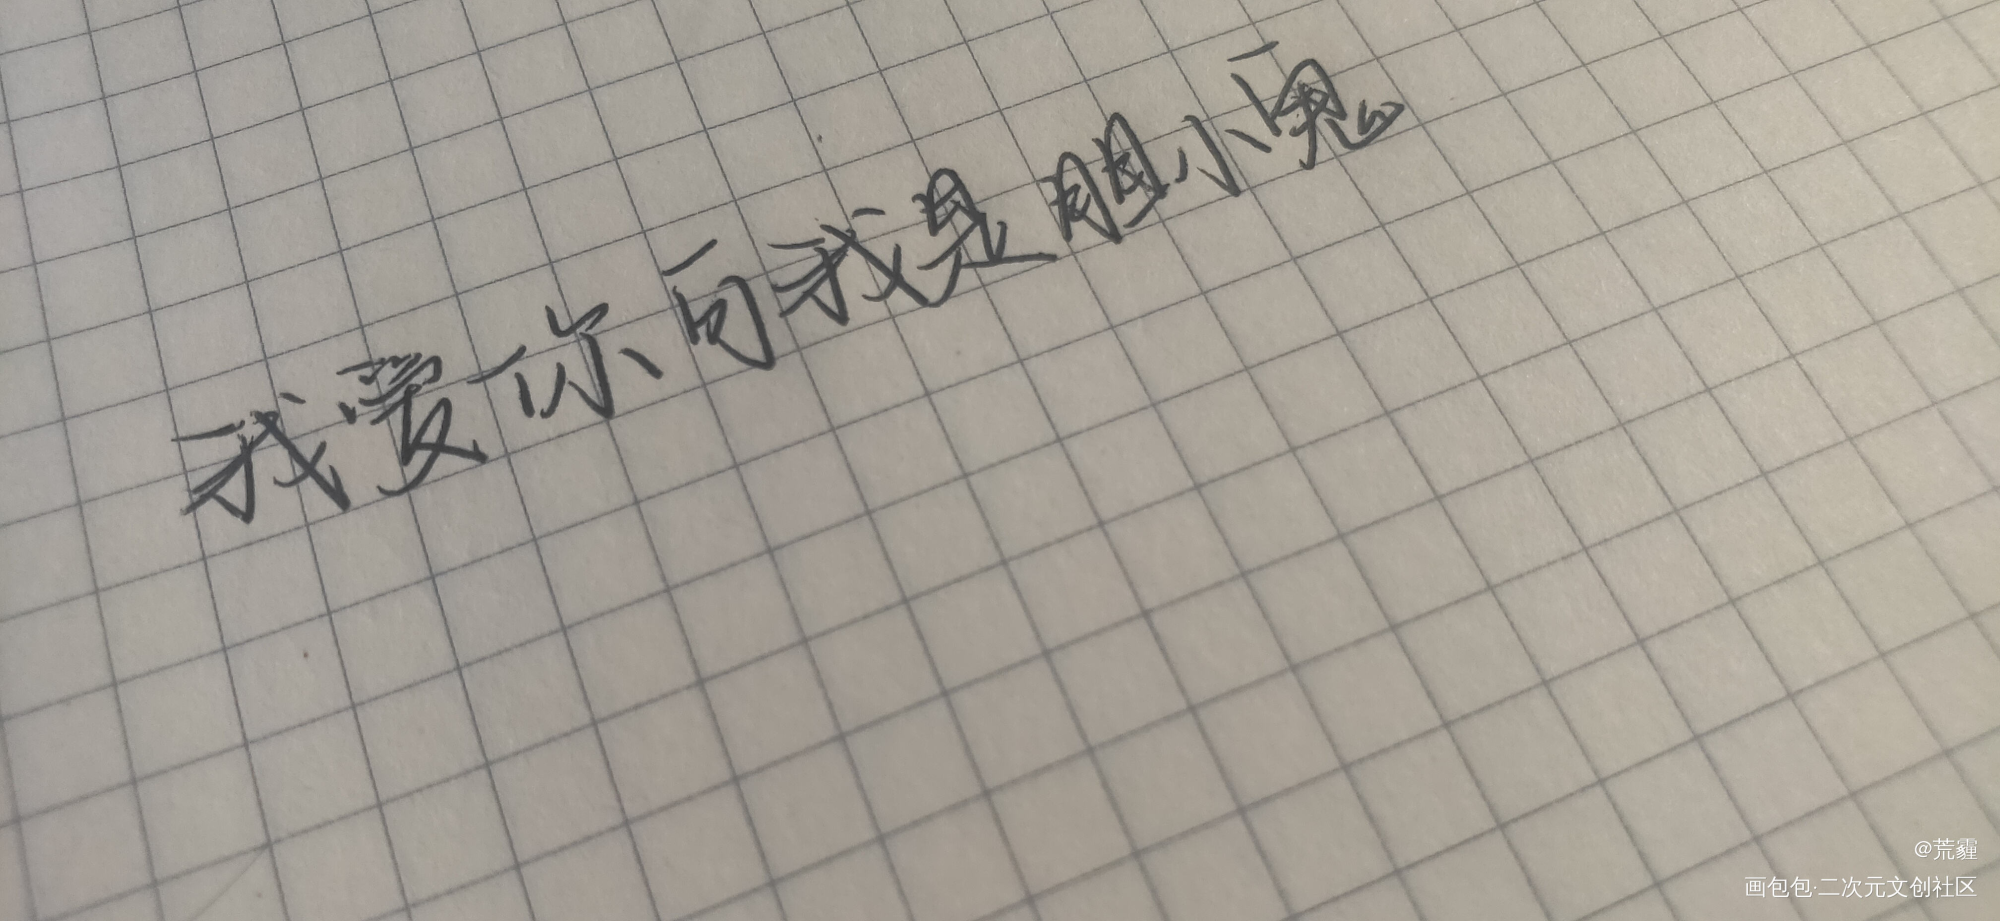 我爱你可我是胆小鬼
@荒霾
画包包·二次元文创社区